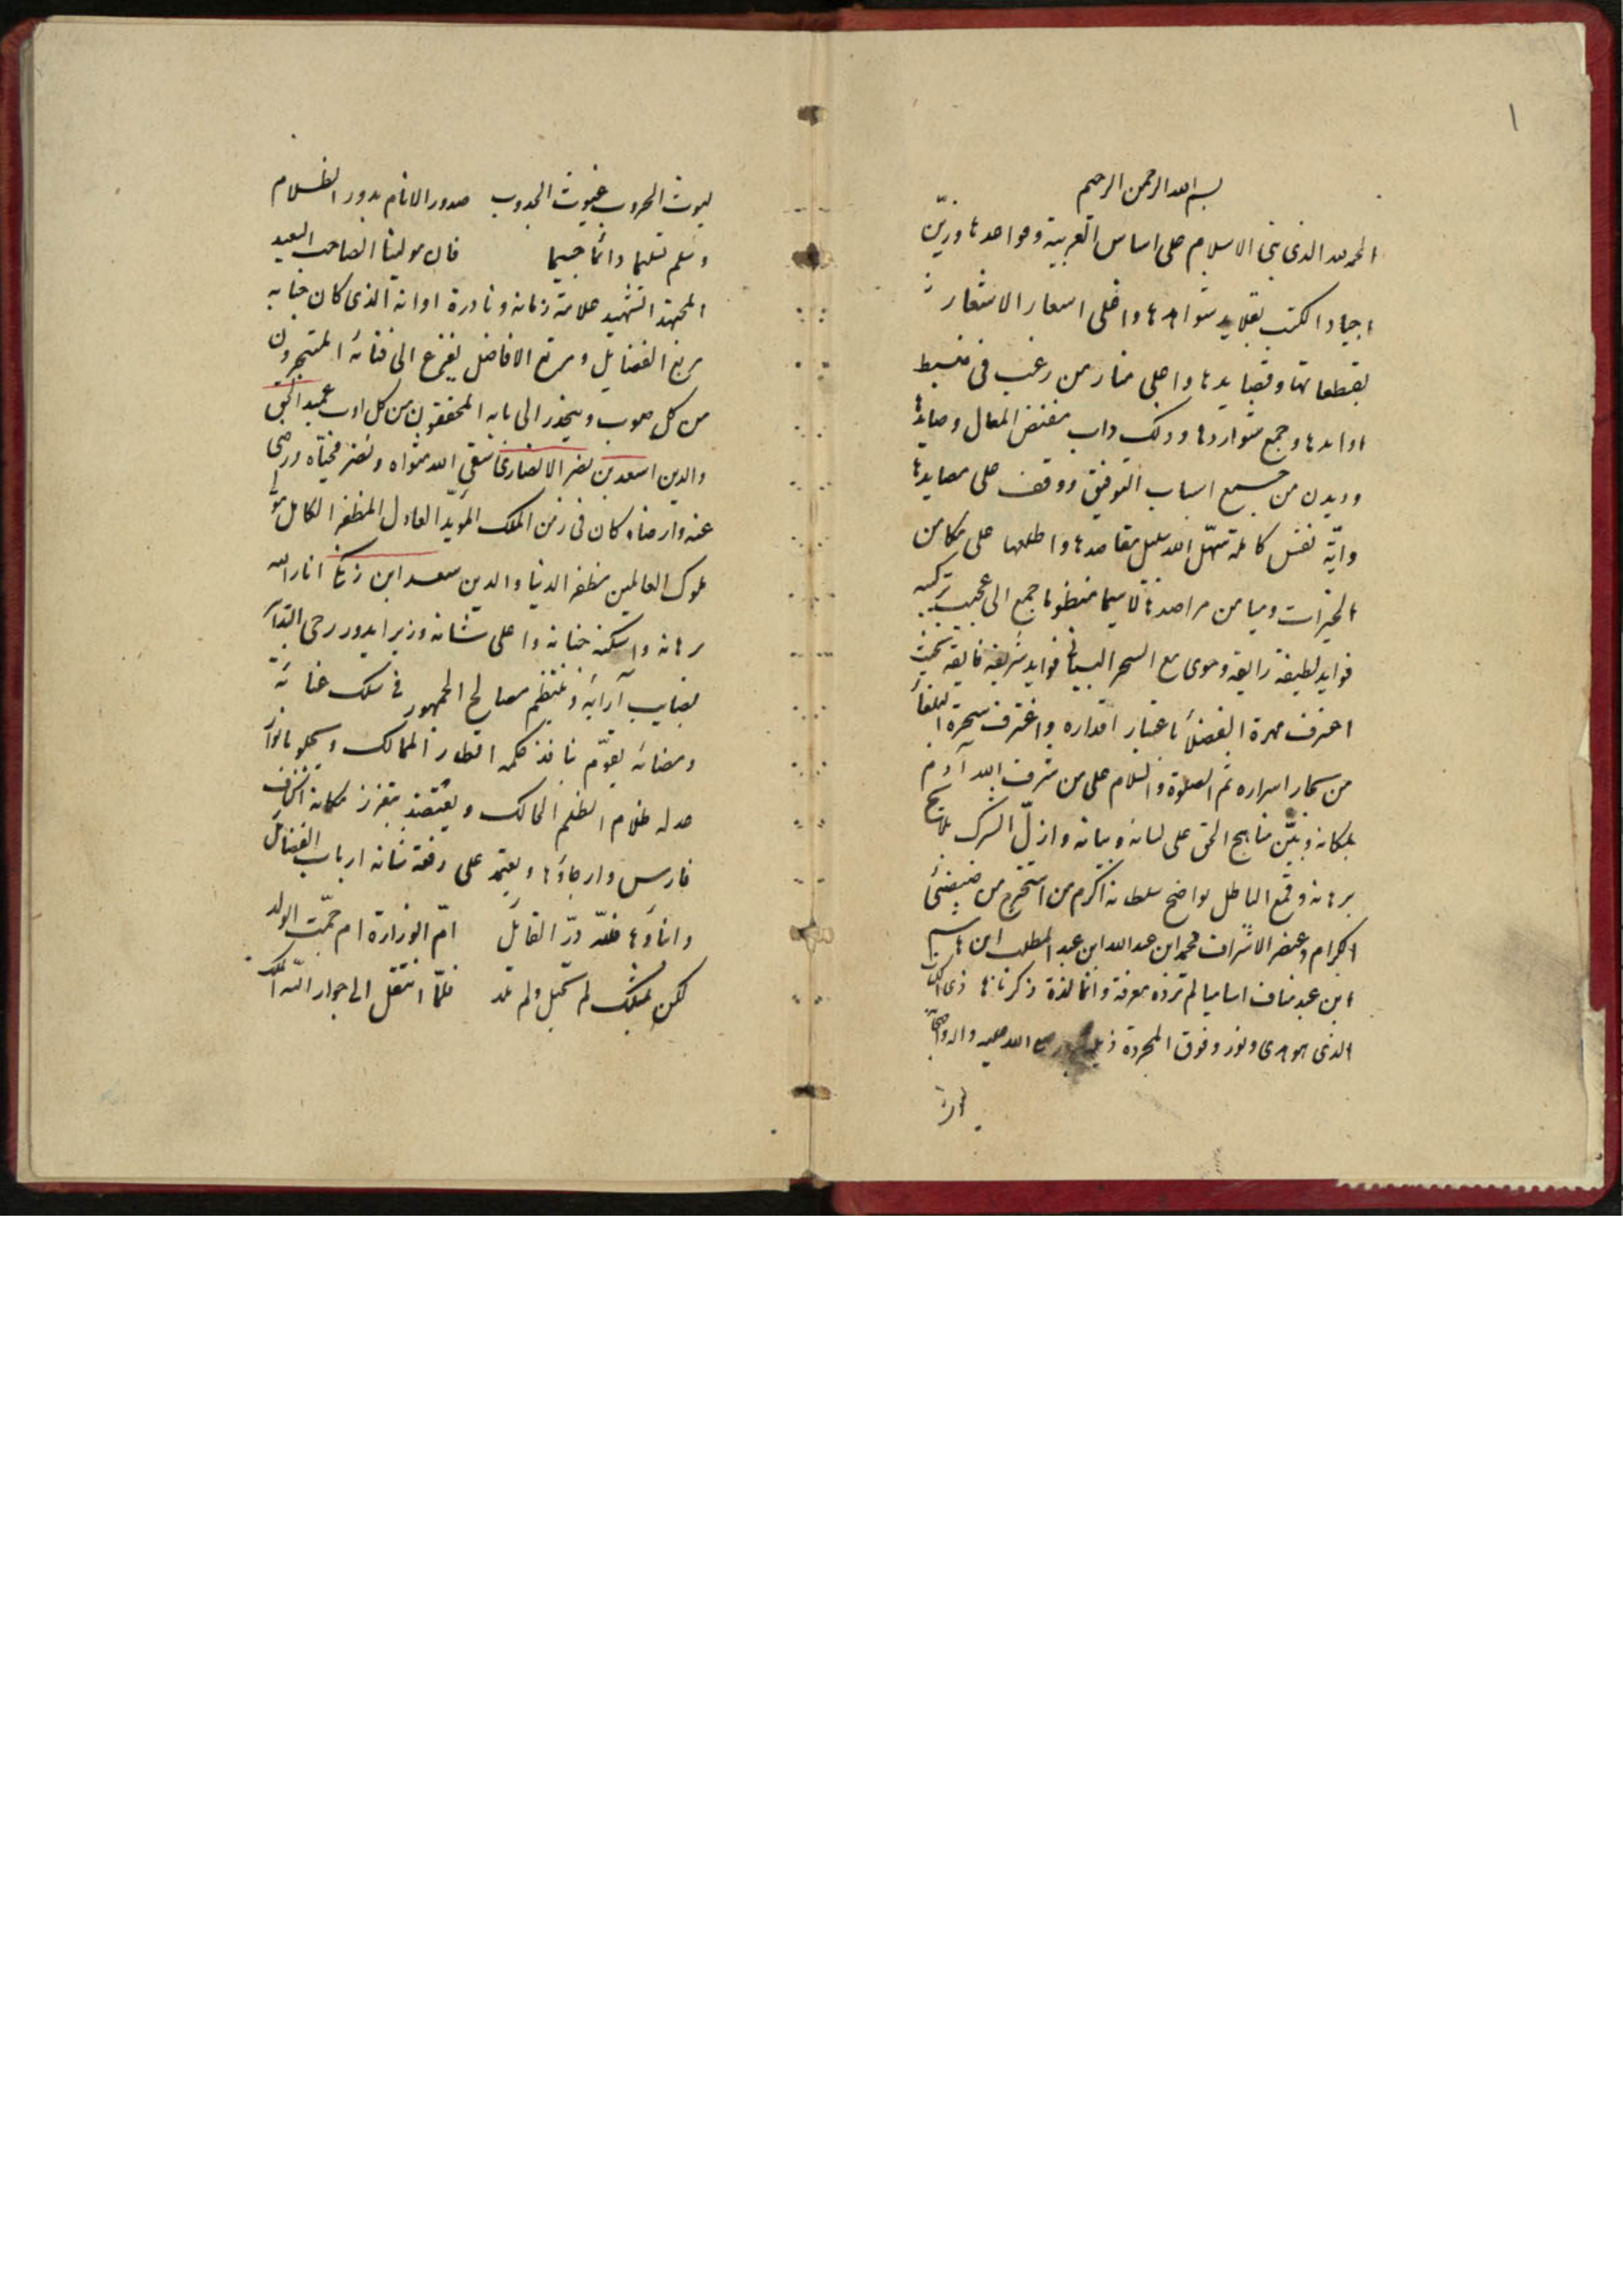 ١
بسم الله الرحمن الرحيم
الحمد لله الذى بنى الاسلام على اساس العربية وقواعدها وزيّن
اجياد الكتب بقلايد شواهدها واغلى اسعار الاشعار
بقطعاتها وقصايدها واعلى منار من رغب فى ضبط
اوابدها وجمع شواردها وذلك داب مقتنص المعالى وصايدها
وديدن من جمع اسباب التوفيق ووقف على مصايدها
وايّة نفس كاملة سهّل الله سبيل مقاصدها واطلعها على مكامن
الخيرات وميامن مراصدها لا سيما منظوما جمع الى عجيب تركيبه
فوايد لطيفة رايقة وحوى مع السحر البيانى فوايد شريفة فايقة بحيث
اعترف مهرة الفضلاء باعتبار اقداره واغترف سحرة البلغاء
من بحار اسراره ثم الصلوة والسلام على من شرف الله آدم
بمكانه وبيّن مناهج الحق على لسانه وبيانه وازلّ الشرك بلايح
برهانه وقمع الباطل بواضح سلطانه اكرم من استخرج من ضيضئ
الكرام وعنصر الاشراف محمد ابن عبد الله ابن عبد المطلب ابن هاشم
ابن عبد مناف اساميا لم تزده معرفة وانما لذة ذكرناها
الذى هو هدى ونور وفوق المجردة صلى الله عليه واله واصحابه
ليوث الحروب غيوث الجدوب صدور الانام بدور الظلام
وسلم تسليما دائما جسيما فان مولينا الصاحب السعيد
المجتهد الشهيد علامة زمانه ونادرة اوانه الذى كان جنابه
مربع الفضايل ومرتع الافاضل يفزع الى فنائه المتبحرون
من كل صوب وينحدر الى بابه المحققون من كل اوب عميد الحق
والدين اسعد بن نصر الانصارى سقى الله مثواه ونضر محيّاه ورضى
عنه وارضاه كان فى زمن الملك المؤيد العادل المظفر الكامل
ملوك العالمين مظفر الدنيا والدين سعد ابن زنكى انار الله
برهانه واسكنه جنانه واعلى شانه وزيرا يدور رحى التدبير
بصايب آرايه وينتظم مصالح الجمهور فى سلك عنائه
ومضائه يقوّم نافذ حكمه اقطار الممالك ويجلو بانوار
عدله ظلام الظلم الحالك ويعتضد بتعزز مكانه اشراف
فارس وارجاؤها ويعتمد على رفعة شانه ارباب الفضايل
وابناؤها فللّه درّ القايل امّ الوزارة ام جمّة الولد
لكن بمثلك لم تحبل ولم تلد فلمّا انتقل الى جوار الله الملك